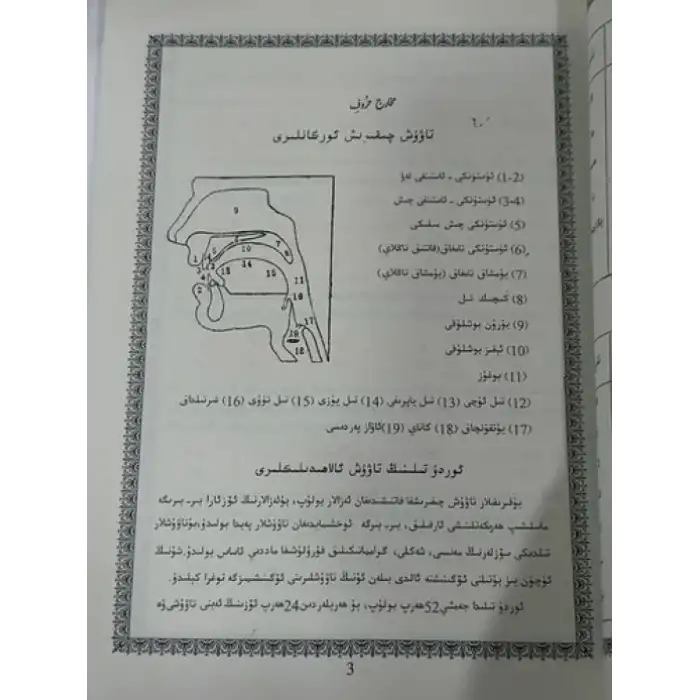 مخارج حروف
تاۋۇش چىقىرىش ئورگانلىرى
(1-2) ئۈستۈنكى - ئاستىنقى لەۋ
(3-4) ئۈستۈنكى - ئاستىنقى چىش
(5) ئۈستۈنكى چىش مىلىكى
(6) ئۈستۈنكى تاڭلاي(قاتتىق تاڭلاي)
(7) يۇمشاق تاڭلاي (يۇمشاق تاڭلاي)
(8) كىچىك تىل
(9) بۇرۇن بوشلۇقى
(10) ئېغىز بوشلۇقى
(11) بوغۇز
(12) تىل ئۇچى (13) تىل ياپرىقى (14) تىل يۈزى (15) تىل تۈۋى (16)
(17) يۇتقۇنچاق (18) كاناي (19)ئاۋاز پەردىسى
ئوردۇ تىلىنىڭ تاۋۇش ئالاھىدىلىكلىرى
يۇقىرىقىلار تاۋۇش چىقىرىشقا قاتنىشىدىغان ئەزالار بولۇپ، بۇئەزالارنىڭ ئۆزئارا بىر-بىرىگە
ماسلىشىپ ھەرىكەتلىنىشى ئارقىلىق، بىر-بىرگە ئوخشىمايدىغان تاۋۇشلار پەيدا بولىدۇ،بۇتاۋۇشلار
تىلدىكى سۆزلەرنىڭ مەنىسى، شەكلى، گرامماتىكىلىق قۇرۇلۇشقا ماددىي ئاساس بولىدۇ.شۇنىڭ
ئۈچۈن بىز بۇتىلنى ئۆگىنىشتە ئالدى بىلەن ئۇنىڭ تاۋۇشلىرىنى ئۆگىنىشىمىزگە توغرا كېلىدۇ.
ئوردۇ تىلىدا جەمئىي52ھەرپ بولۇپ، بۇ ھەرپلەردىن24ھەرپ ئۆزىنىڭ ئەينى تاۋۇشى ۋە
3